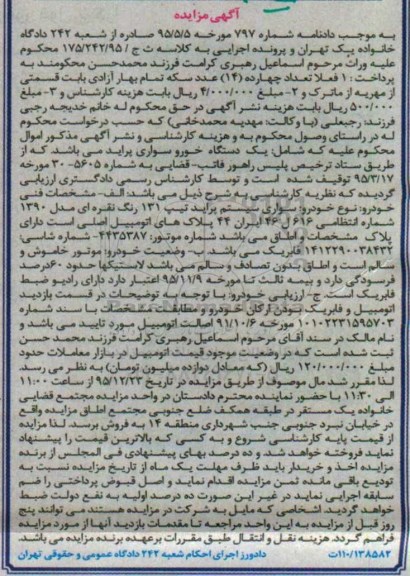 آگهی مزایده
به موجب دادنامه شماره ۷۹۷ مورخه ۹۵/۵/۵ صادره از شعبه ۲۴۲ دادگاه
خانواده یک تهران و پرونده اجرایی به کلاسه ث ج / ۱۷۵/۲۴۲/۹۵ محکوم
علیه وراث مرحوم اسماعیل رهبری کرامت فرزند محمدحسن محکومند به
پرداخت: ۱- فعلا تعداد چهارده (۱۴) عدد سکه تمام بهار آزادی بابت قسمتی
از مهریه از ماترک و ۲- مبلغ ۴/۰۰۰/۰۰۰ ریال بابت هزینه کارشناس و ۳- مبلغ
۵۰۰/۰۰۰ ریال بابت هزینه نشر آگهی در حق محکوم له خانم خدیجه رجبی
فرزند: رجبعلی (با وکالت: مهدیه محمدخانی) که حسب درخواست محکوم
له در راستای وصول محکوم به و هزینه کارشناسی و نشر آگهی مذکور اموال
محکوم علیه که شامل: یک دستگاه خورو سواری پراید می باشد که از
طریق ستاد ترخیص پلیس راهور فاتب- قضایی به شماره ۵۶۰۵-۳۰ مورخه
۹۵/۳/۱۷ توقیف شده است و توسط کارشناس رسمی دادگستری ارزیابی
گردیده که نظریه کارشناسی به شرح ذیل می باشد: الف- مشخصات فنی
خودرو: نوع خودرو: سواری سیستم پراید تیپ ۱۳۱ رنگ نقره ای مدل ۱۳۹۰
شماره انتظامی ۶۱۶ ل ۴۶ ایران ۴۴ پلاک های اتومبیل اصلی است دارای
پلاک مشخصات و اطاق می باشد شماره موتور: ۴۴۳۵۳۸۷- شماره شاسی:
۱۴۱۲۲۹۰۰۳۸۴۳۲ فابریک می باشد. ب- وضعیت خودرو: موتور خاموش و
سالم است و اطاق بدون تصادف و سالم می باشد لاستیکها حدود ۶۰درصد
فرسودگی دارد و بیمه ثالث تا مورخه ۹۵/۱۱/۹ اعتبار دارد دارای رادیو ضبط
فابریک است. ج- ارزیابی خودرو: با توجه به توضیحات در قسمت بازدید
اتومبیل و فابریک بودن ارکان خودرو و مطابقت مشخصات با سند شماره
۱۰۱۰۲۲۳۱۵۹۵۷۰۳ مورخه ۹۱/۱۰/۶ اصالت اتومبیل مورد تایید می باشد و
نام مالک در سند آقای مرحوم اسماعیل رهبری کرامت فرزند محمد حسن
ثبت شده است که در وضعیت موجود قیمت اتومبیل در بازار معاملات حدود
مبلغ ۱۲۰/۰۰۰/۰۰۰ ریال (که معادل دوازده میلیون تومان) به نظر می رسد.
لذا مقرر شد مال موصوف از طریق مزایده در تاریخ ۹۵/۱۲/۲۳ از ساعت ۱۱:۰۰
الی ۱۱:۳۰ با حضور نماینده محترم دادستان در واحد مزایده مجتمع قضایی
خانواده یک مستقر در طبقه همکف ضلع جنوبی مجتمع اطاق مزایده واقع
در خیابان نبرد جنوبی جنب شهرداری منطقه ۱۴ به فروش برسد. لذا مزایده
از قیمت پایه کارشناسی شروع و به کسی که بالاترین قیمت را پیشنهاد
نماید فروخته خواهد شد. و ده درصد بهای پیشنهادی فی المجلس از برنده
مزایده اخذ و خریدار باید ظرف مهلت یک ماه از تاریخ مزایده نسبت به
تودیع باقی مانده ثمن مزایده اقدام نماید و اصل قبوض پرداختی را ضم
سابقه اجرایی نماید در غیر این صورت ده درصد اولیه به نفع دولت ضبط
خواهد گردید. اشخاصی که مایل به شرکت در مزایده هستند می توانند پنج
روز قبل از مزایده به این واحد مراجعه تا مقدمات بازدید آنها از مورد مزایده
فراهم گردد. هزینه نقل و انتقال طبق مقررات برعهده برنده مزایده می باشد.
۱۱۰/۱۳۸۵۸۲ت دادورز اجرای احکام شعبه ۲۴۲ دادگاه عمومی و حقوقی تهران